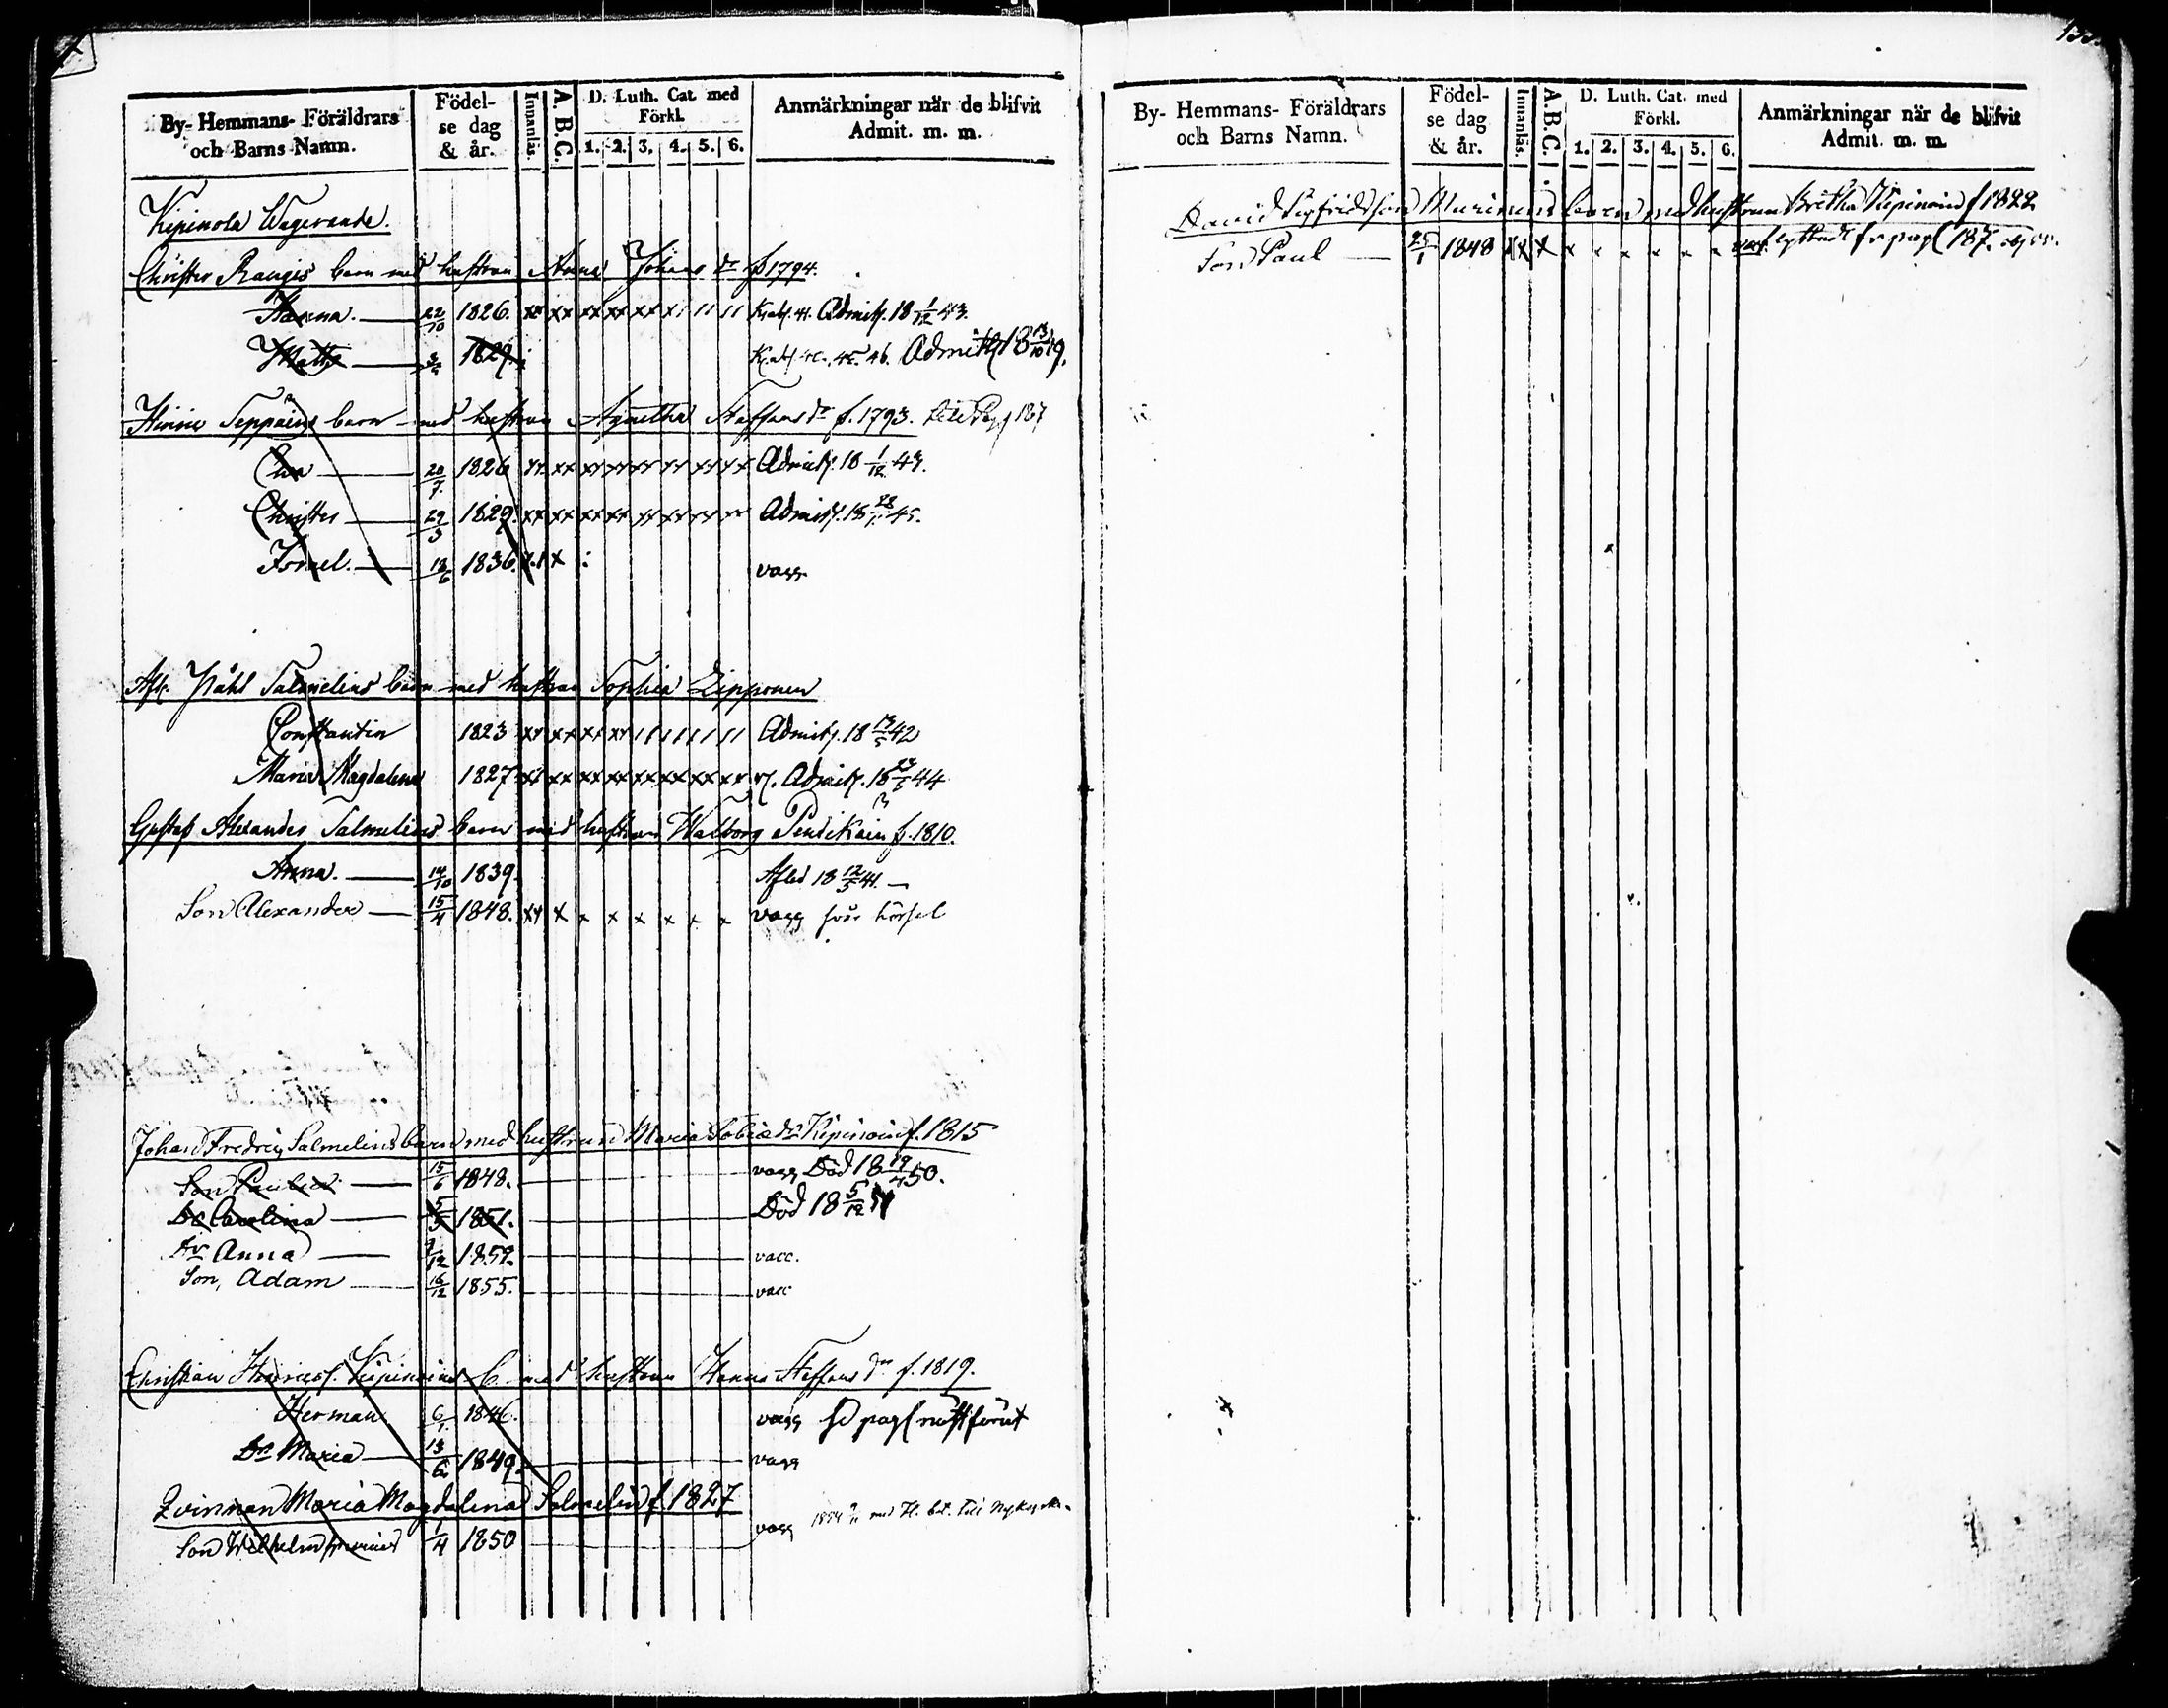 By- Hemmans- Föräldrars och Barns Namn.
Födelse dag & år.
Innanläs.
A.B.C.
D. Luth. Cat. med Förkl.
1. 2. 3. 4. 5. 6.
Anmärkningar när de blifvit Admit. m. m.
Kipinola Wagerande.
Christer Rauges barn med hustrun Anna Johans dr f 1794.
Hanna. 22/10 1826. xx xx xx xx xx x Admitt. 18 1/12 43.
Matts 1829. Admitt 18 13/10 49.
Hinric Seppäins barn med hustrun Agnetha Staffans dr f. 1793.
Eva 20/7. 1826 xx xx xx xx xx xx xx xx Admitt. 18 1/12 43.
Christer 29/3 1829. xx xx xx xx xx xx xx Admitt. 18 45.
Ismel. 18/6 1836. x vagg.
Afl. Påhl Salmelins barn med hustrun Sophia Lipponen
Constantin 1823 xx xx xx xx Admitt. 18 13/5 42
Maria Magdalena 1827 xx xx xx xx xx xx xx xx Admitt. 18 23/5 44
Gustaf Alexander Salmelins barn med hustrun Walborg Pendikäin f. 1810.
Anna. 14/10 1839. Afled 18 12/5 41.
Son Alexander 15/4 1848. xx x x x x x x x vagg svår hörsel
Johan Fredric Salmelins barn med hustrun Maria Tobiæ dr Kipinoin f. 1815
Son Paulus 15/6 1848. vagg Död 18 19/4 50.
Dr Carolina 5/5 1851. Död 18 5/12 51
Dr Anna 1852. vacc.
Son, Adam 16/12 1855. vacc
Christian Henrics. Kipinoins b. med hustrun Hanna Staffans dr f. 1819.
Herman 6/1. 1846. vagg pag näst förut
Dr Maria 13/6 1849. vagg
Qvinnan Maria Magdalena Salmelin f. 1827
Son Wilhelm 1/4 1850 vagg 1854
By- Hemmans- Föräldrars och Barns Namn.
Födelse dag & år.
Innanläs.
A.B.C.
D. Luth. Cat. med Förkl.
1. 2. 3. 4. 5. 6.
Anmärkningar när de blifvit Admit. m. m.
David Sigfridsson Murinens barn med hustrun Bretha Kipinoin f 1822
Son Paul 25/1 1848 x x x x x x x x